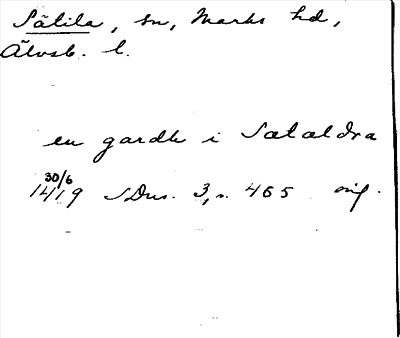 Sätila, sn, Marks hd,
Älvsb. l.
en gardh i Sætældra
30/6
1419 SDns. 3, s. 465 orig.